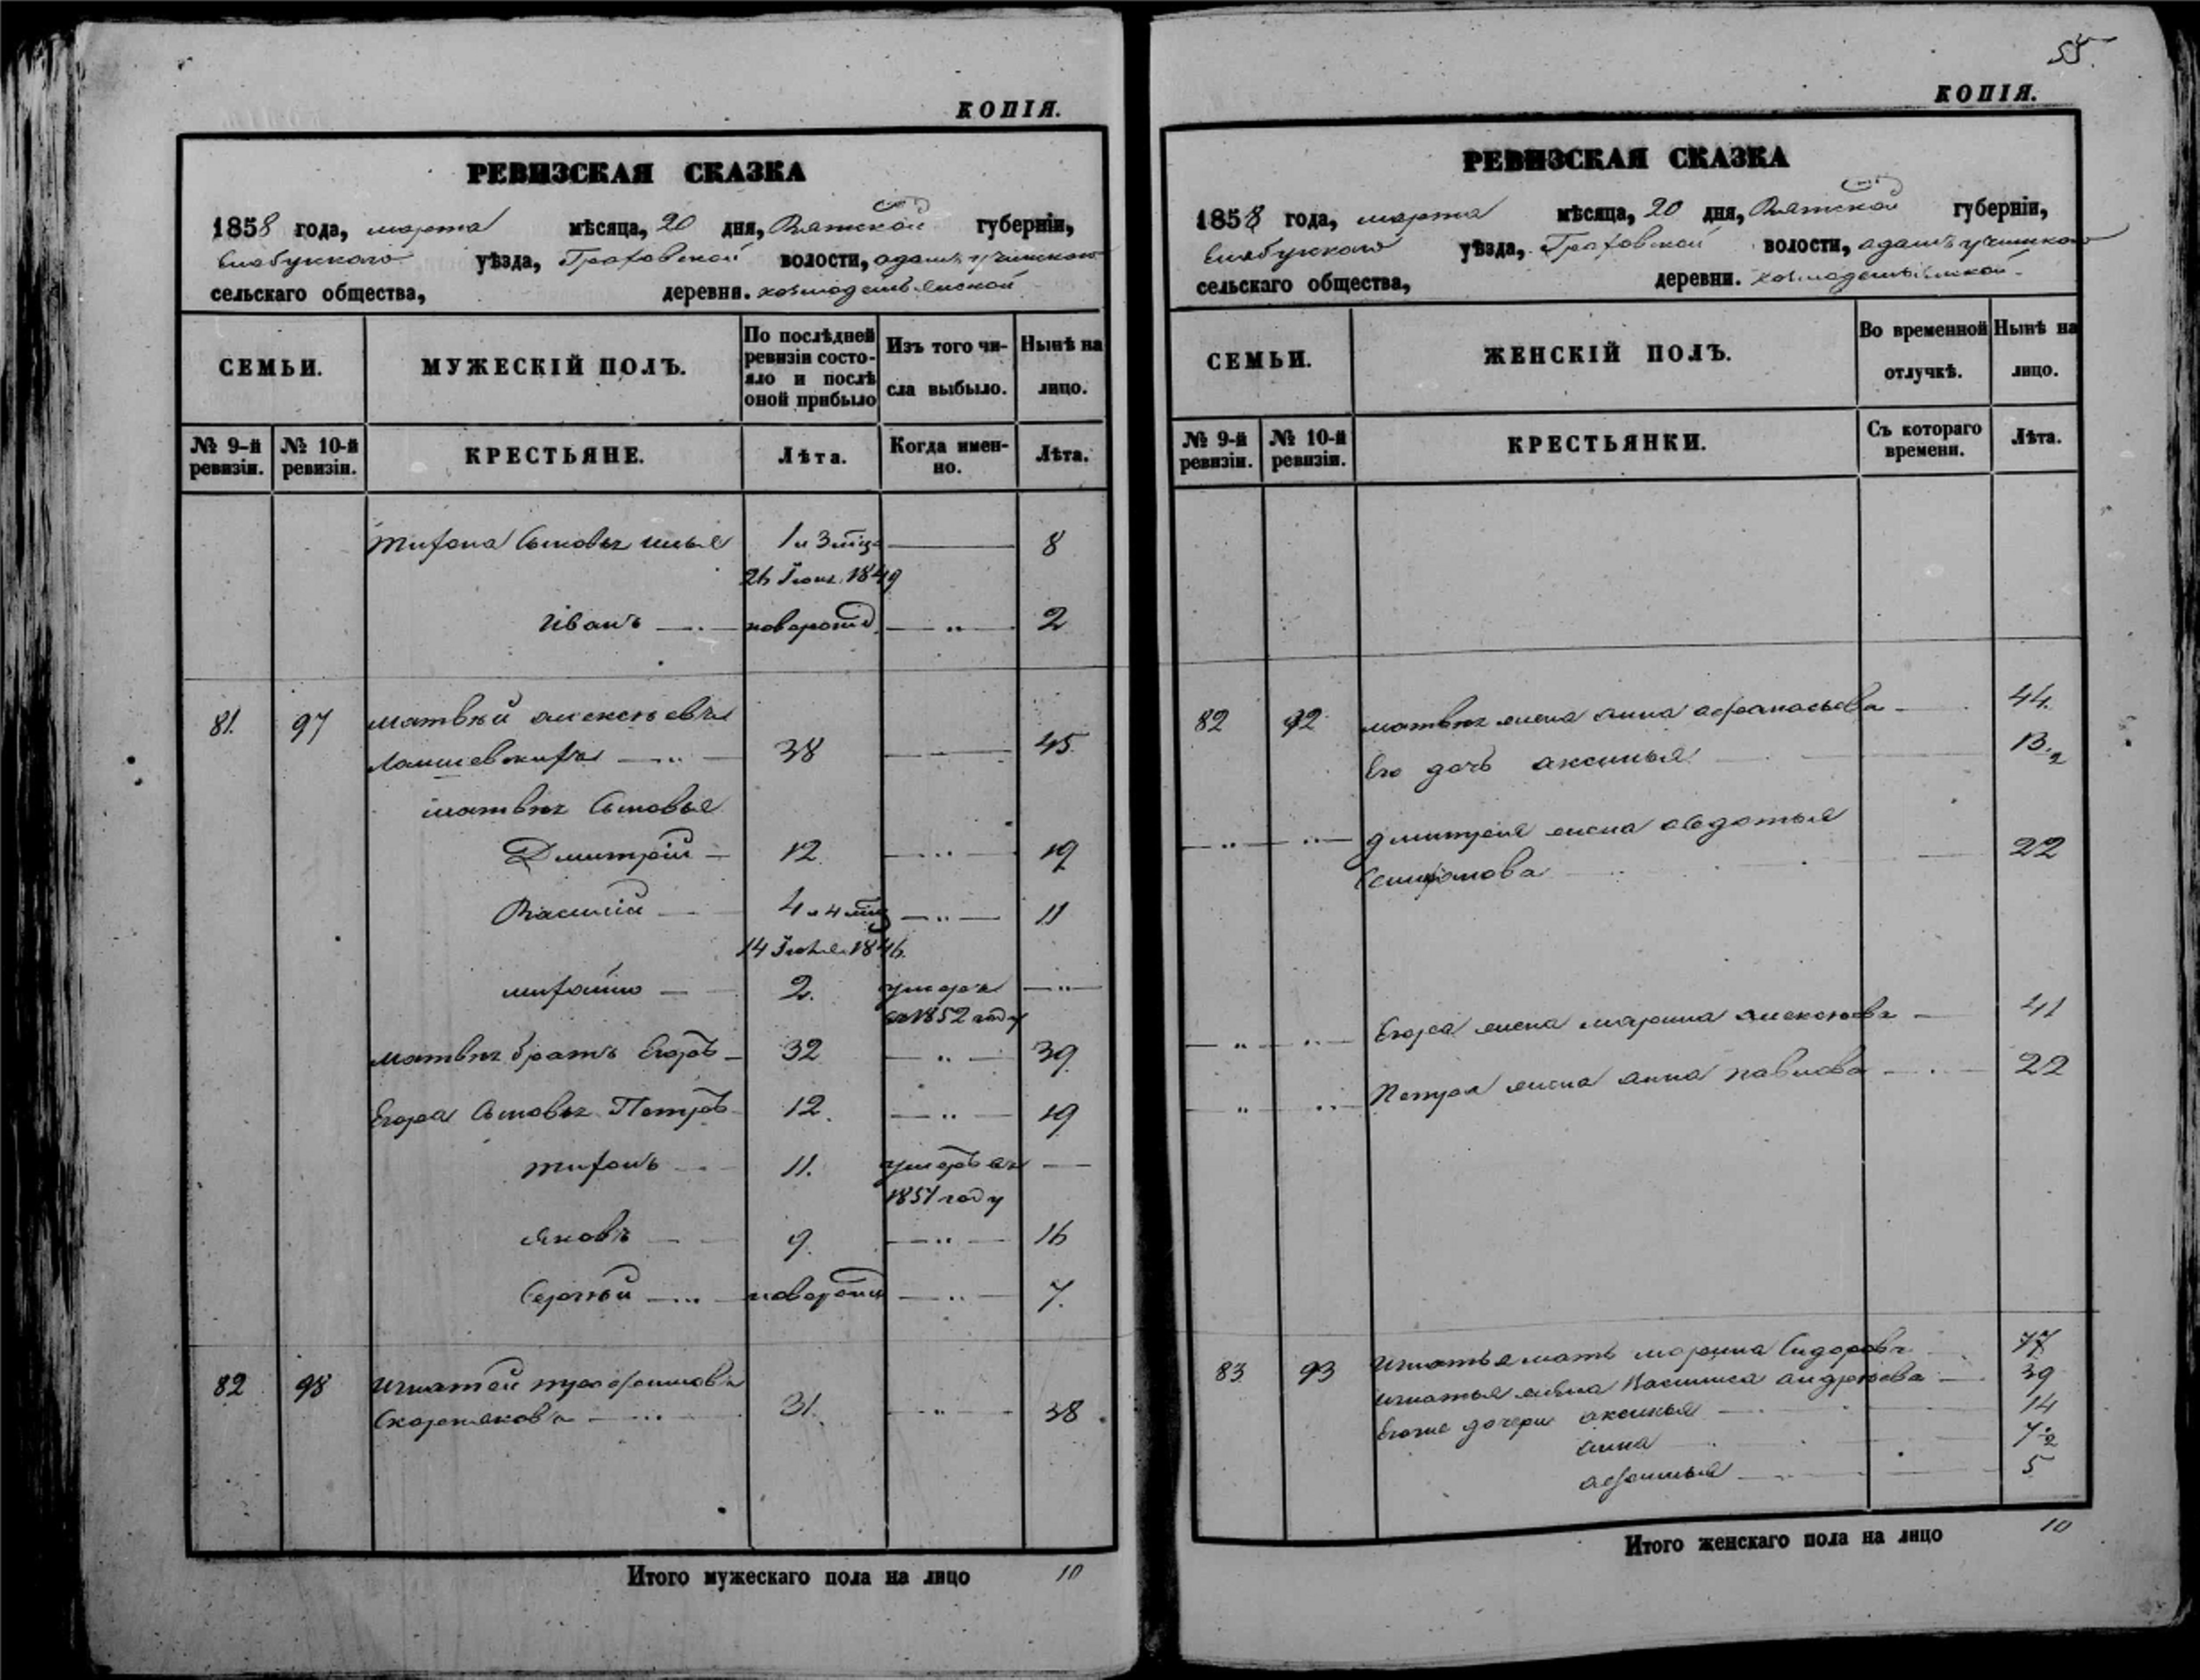 КОПІЯ.
РЕВИЗСКАЯ СКАЗКА
1858 года, марта мѣсяца, 20 дня, Вятской губерніи,
Елабугского уѣзда, Граховской волости,
сельскаго общества, деревни. козмодемьянской
СЕМЬИ.
МУЖЕСКІЙ ПОЛЪ.
По послѣдней ревизіи состо-
яло и послѣ
оной прибыло
Изъ того чи-
сла выбыло.
Нынѣ на
лицо.
№ 9-й ревизіи.
№ 10-й ревизіи.
КРЕСТЬЯНЕ.
Лѣта.
Когда имен-
но.
Лѣта.
Тихона Сыновья илья 1 и 3 мѣц 8
26 Іюн. 1849
Иванъ новорожд 2
81. 97 матвѣй алексѣевъ
38 45
матвѣя Сыновья
Дмитрій 12. 19
Василій 4 и 4 мѣц 11
14 1846
2. умеръ
въ 1852 году
матвѣя братъ Егоръ 32 39
Егора Сыновья Петръ 12. 19
тихонъ 11. умеръ въ
1851 году
яковъ 9. 16
Сергѣй новорожд 7.
82 98 Игнатей
Скорняковъ 31. 38
Итого мужескаго пола на лицо 10
55.
КОПІЯ.
РЕВИЗСКАЯ СКАЗКА
1858 года, марта мѣсяца, 20 дня, Вятской губерніи,
Елабугского уѣзда, Граховской волости,
сельскаго общества, деревни. козмодемьянской
СЕМЬИ.
ЖЕНСКІЙ ПОЛЪ.
Во временной
отлучкѣ.
Нынѣ на
лицо.
№ 9-й ревизіи.
№ 10-й ревизіи.
КРЕСТЬЯНКИ.
Съ котораго
времени.
Лѣта.
82 92 матвѣя жена анна афанасьева 44.
Его дочь аксинья 13.
дмитрея жена авдотья
22
Егора жена марина алексѣева 41
Петра жена анна павлова 22
83 93 Игнатья мать марина Сидорова 77
игнатья жена Василиса андреева 39
Егоже дочери аксинья 14
анна 7
афимья 5
Итого женскаго пола на лицо 10